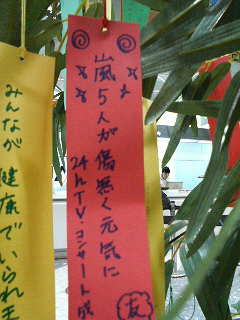 嵐5人が傷無く元気に
24hTV・コンサート成
友
みんなが 健康でいられ